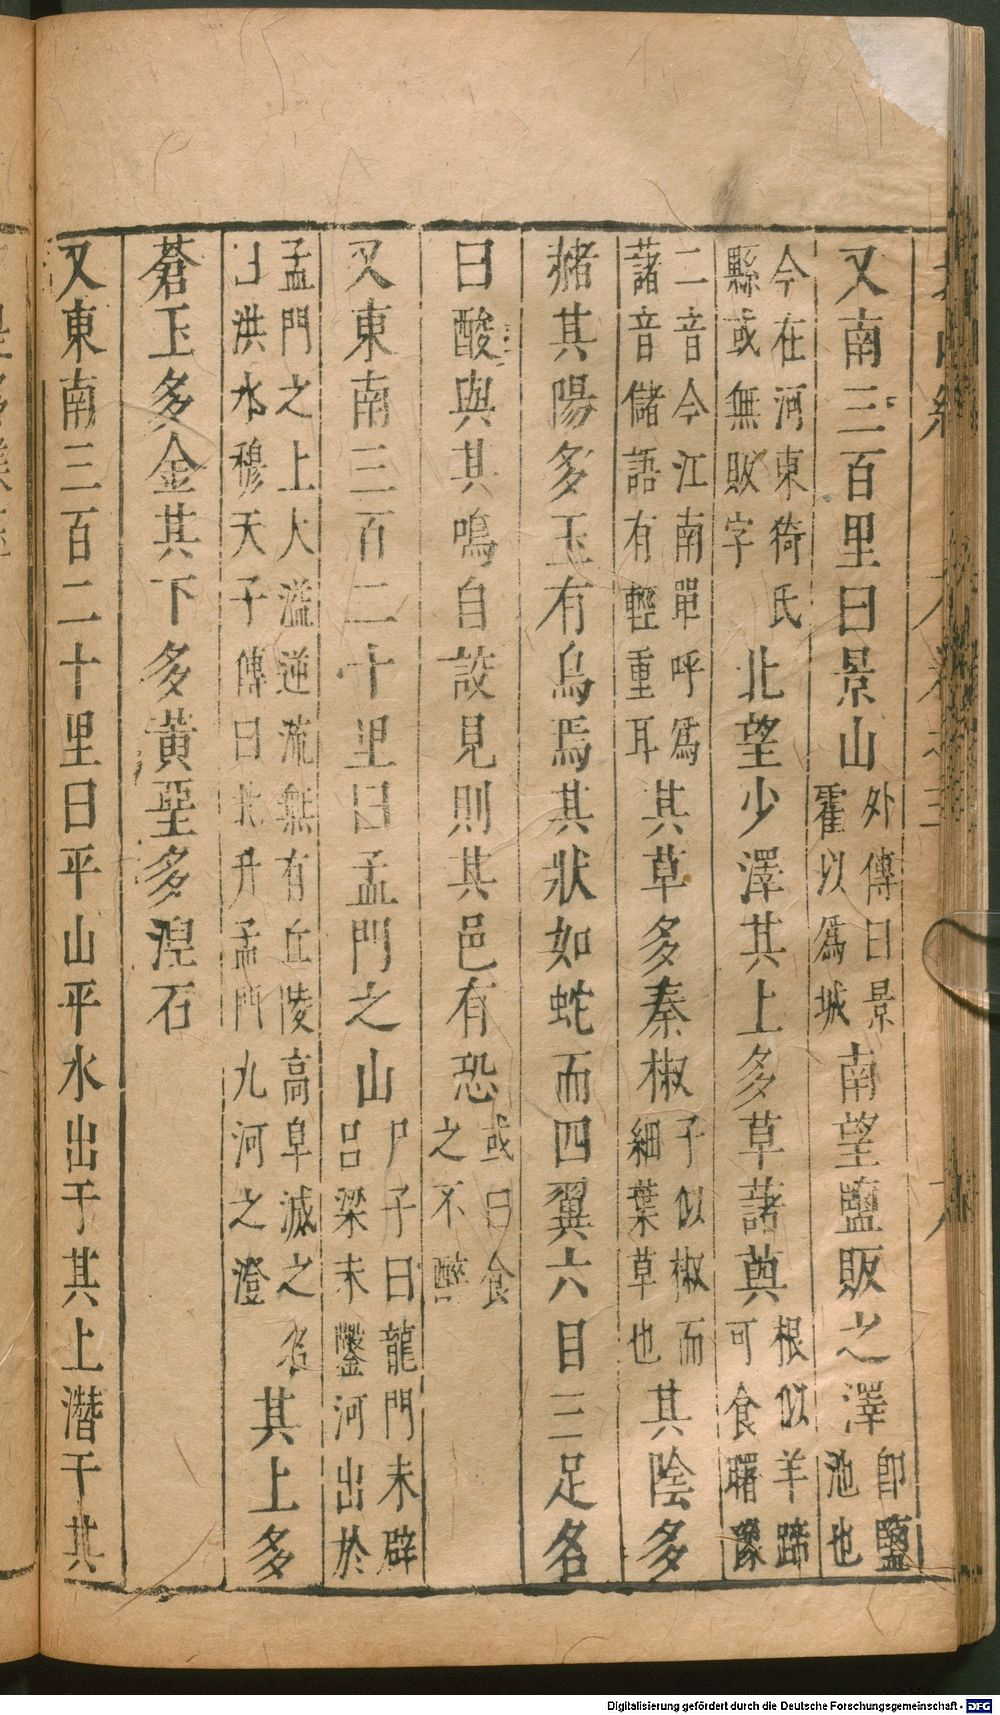 又南三百里曰景山外傳曰景霍以爲城南望鹽販之澤卽鹽池也
今在河東猗氏縣或無販字北望少澤其上多草藷藇根似羊蹄可食曙豫
二音今江南單呼爲藷音儲語有輕重耳其草多秦椒子似椒而細葉草也其陰多
赭其陽多玉有鳥焉其狀如蛇而四翼六目三足名
曰酸與其鳴自詨見則其邑有恐或曰食之不醉
又東南三百二十里曰孟門之山尸子曰龍門未辟呂梁未鑿河出於
孟門之上大溢逆流無有丘陵高阜滅之名曰洪水穆天子傳曰北升孟門九河之澄其上多
蒼玉多金其下多黃堊多涅石
又東南三百二十里曰平山平水出于其上潛于其
Digitalisierung gefördert durch die Deutsche Forschungsgemeinschaft - DFG